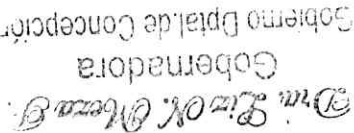 Dra. Liz N. Meza G.
Gobernadora
Gobierno Dptal. de Concepción